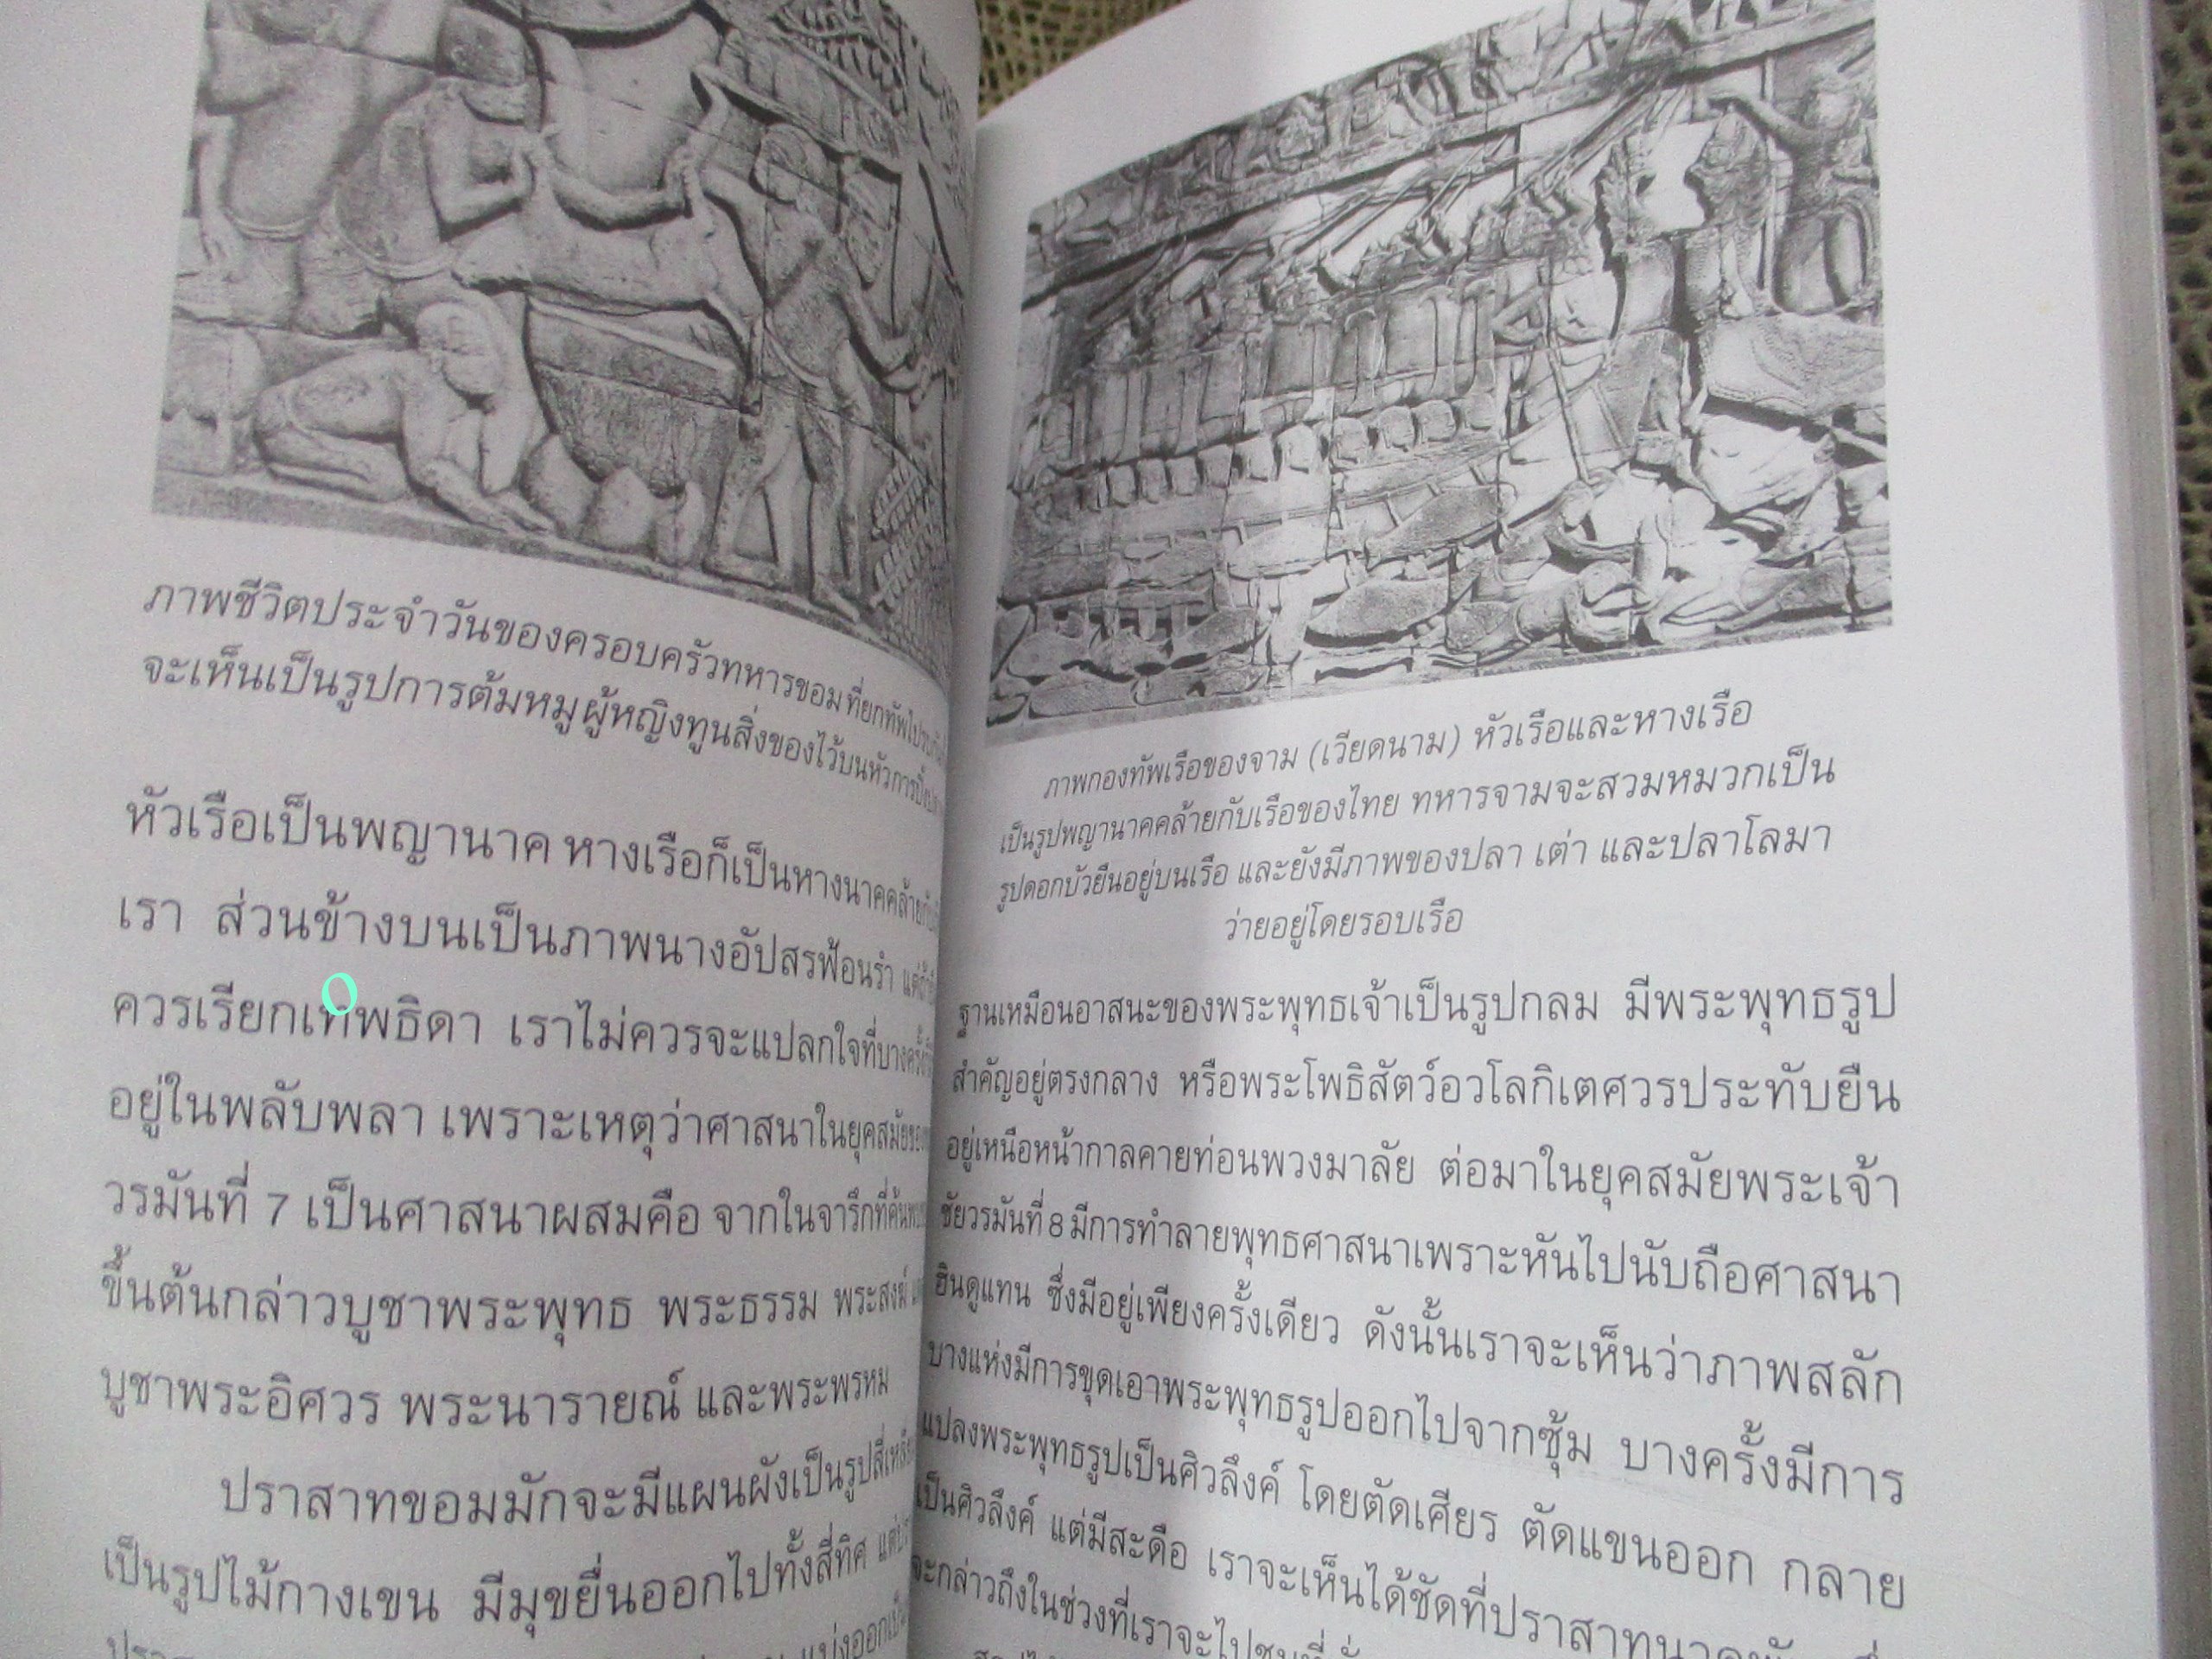 ภาพชีวิตประจำวันของครอบครัวทหารขอม ที่ยกทัพไปรบกับ
จะเห็นเป็นรูปการต้มหมู ผู้หญิงทูนสิ่งของไว้บนหัว
หัวเรือเป็นพญานาค หางเรือก็เป็นหางนาคคล้ายกับ
เรา ส่วนข้างบนเป็นภาพนางอัปสรฟ้อนรำ
ควรเรียกเทพธิดา เราไม่ควรจะแปลกใจที่บางครั้ง
อยู่ในพลับพลา เพราะเหตุว่าศาสนาในยุคสมัยของ
วรมันที่ 7 เป็นศาสนาผสมคือ จากในจารึกที่ค้นพบ
ขึ้นต้นกล่าวบูชาพระพุทธ พระธรรม พระสงฆ์
บูชาพระอิศวร พระนารายณ์ และพระพรหม
ปราสาทขอมมักจะมีแผนผังเป็นรูปสี่เหลี่ยม
เป็นรูปไม้กางเขน มีมุขยื่นออกไปทั้งสี่ทิศ
แบ่งออกเป็น
ภาพกองทัพเรือของจาม (เวียดนาม) หัวเรือและหางเรือ
เป็นรูปพญานาคคล้ายกับเรือของไทย ทหารจามจะสวมหมวกเป็น
รูปดอกบัวยืนอยู่บนเรือ และยังมีภาพของปลา เต่า และปลาโลมา
ว่ายอยู่โดยรอบเรือ
ฐานเหมือนอาสนะของพระพุทธเจ้าเป็นรูปกลม มีพระพุทธรูป
สำคัญอยู่ตรงกลาง หรือพระโพธิสัตว์อวโลกิเตศวรประทับยืน
อยู่เหนือหน้ากาลคายท่อนพวงมาลัย ต่อมาในยุคสมัยพระเจ้า
ชัยวรมันที่ 8 มีการทำลายพุทธศาสนาเพราะหันไปนับถือศาสนา
ฮินดูแทน ซึ่งมีอยู่เพียงครั้งเดียว ดังนั้นเราจะเห็นว่าภาพสลัก
บางแห่งมีการขุดเอาพระพุทธรูปออกไปจากซุ้ม บางครั้งมีการ
แปลงพระพุทธรูปเป็นศิวลึงค์ โดยตัดเศียร ตัดแขนออก กลาย
เป็นศิวลึงค์ แต่มีสะดือ เราจะเห็นได้ชัดที่ปราสาท
จะกล่าวถึงในช่วงที่เราจะไปชม